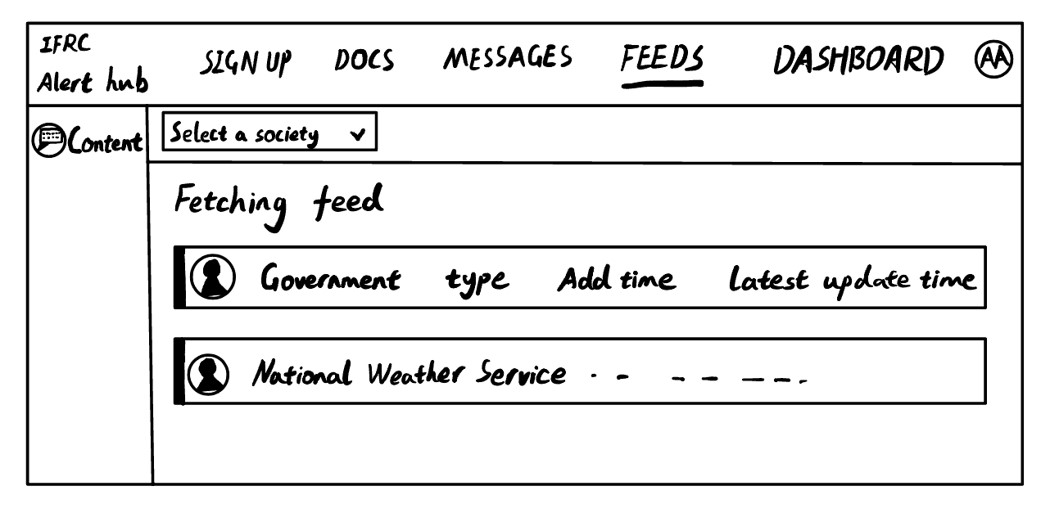 IFRC
Alert hub
SIGN UP DOCS MESSAGES FEEDS DASHBOARD AA
Content
Select a society
Fetching feed
Government type Add time Latest update time
National Weather Service . - - - - - - .